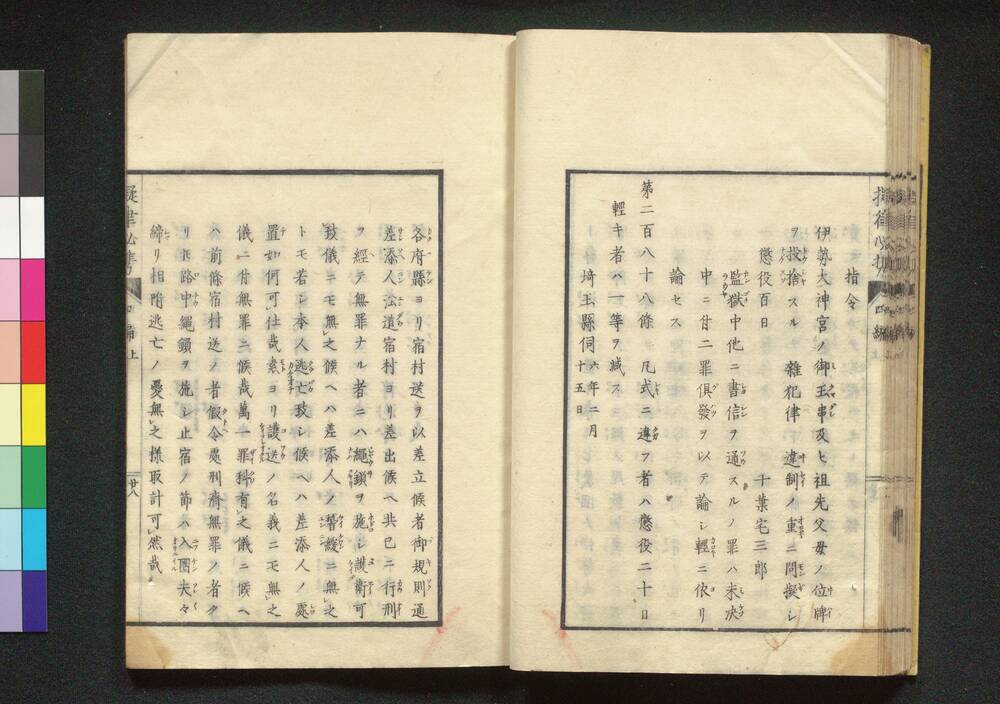 指令
伊勢大神宮ノ御玉串及ヒ祖先父母ノ位牌
ヲ投捨スル者雜犯律下違制ノ重ニ問擬シ
懲役百日
千葉宅三郎
監獄中他ニ書信ヲ通スルノ罪ハ未決
中ニ付二罪俱發ヲ以テ論シ輕ニ依リ
論セス
第二百八十八條 凡式ニ違フ者ハ懲役二十日
輕キ者ハ一等ヲ減ス
埼玉縣伺 六年二月十五日
各府縣ヨリ宿村送ヲ以差立候者御規則通
差添人泒遣宿村ヨリ差出候ヘ共已ニ行刑
ヲ經テ無罪ナル者ニハ繩鎖ヲ施シ護衛可
致儀ニモ無之候ヘハ差添人ノ督緩ニ無之
トモ若シ本人逃亡致シ候ヘハ差添人ノ處
置如何可仕哉素ヨリ護送ノ名義ニモ無之
儀ニ付無罪ニ候哉萬一罪科有之儀ニ候ヘ
ハ前條宿村送ノ者假令處刑濟無罪ノ者タ
リ𪜈路中繩鎖ヲ施シ止宿ノ節ハ入圈夫々
締リ相附逃亡ノ憂無之樣取計可然哉
擬律必携
四編上
廿八